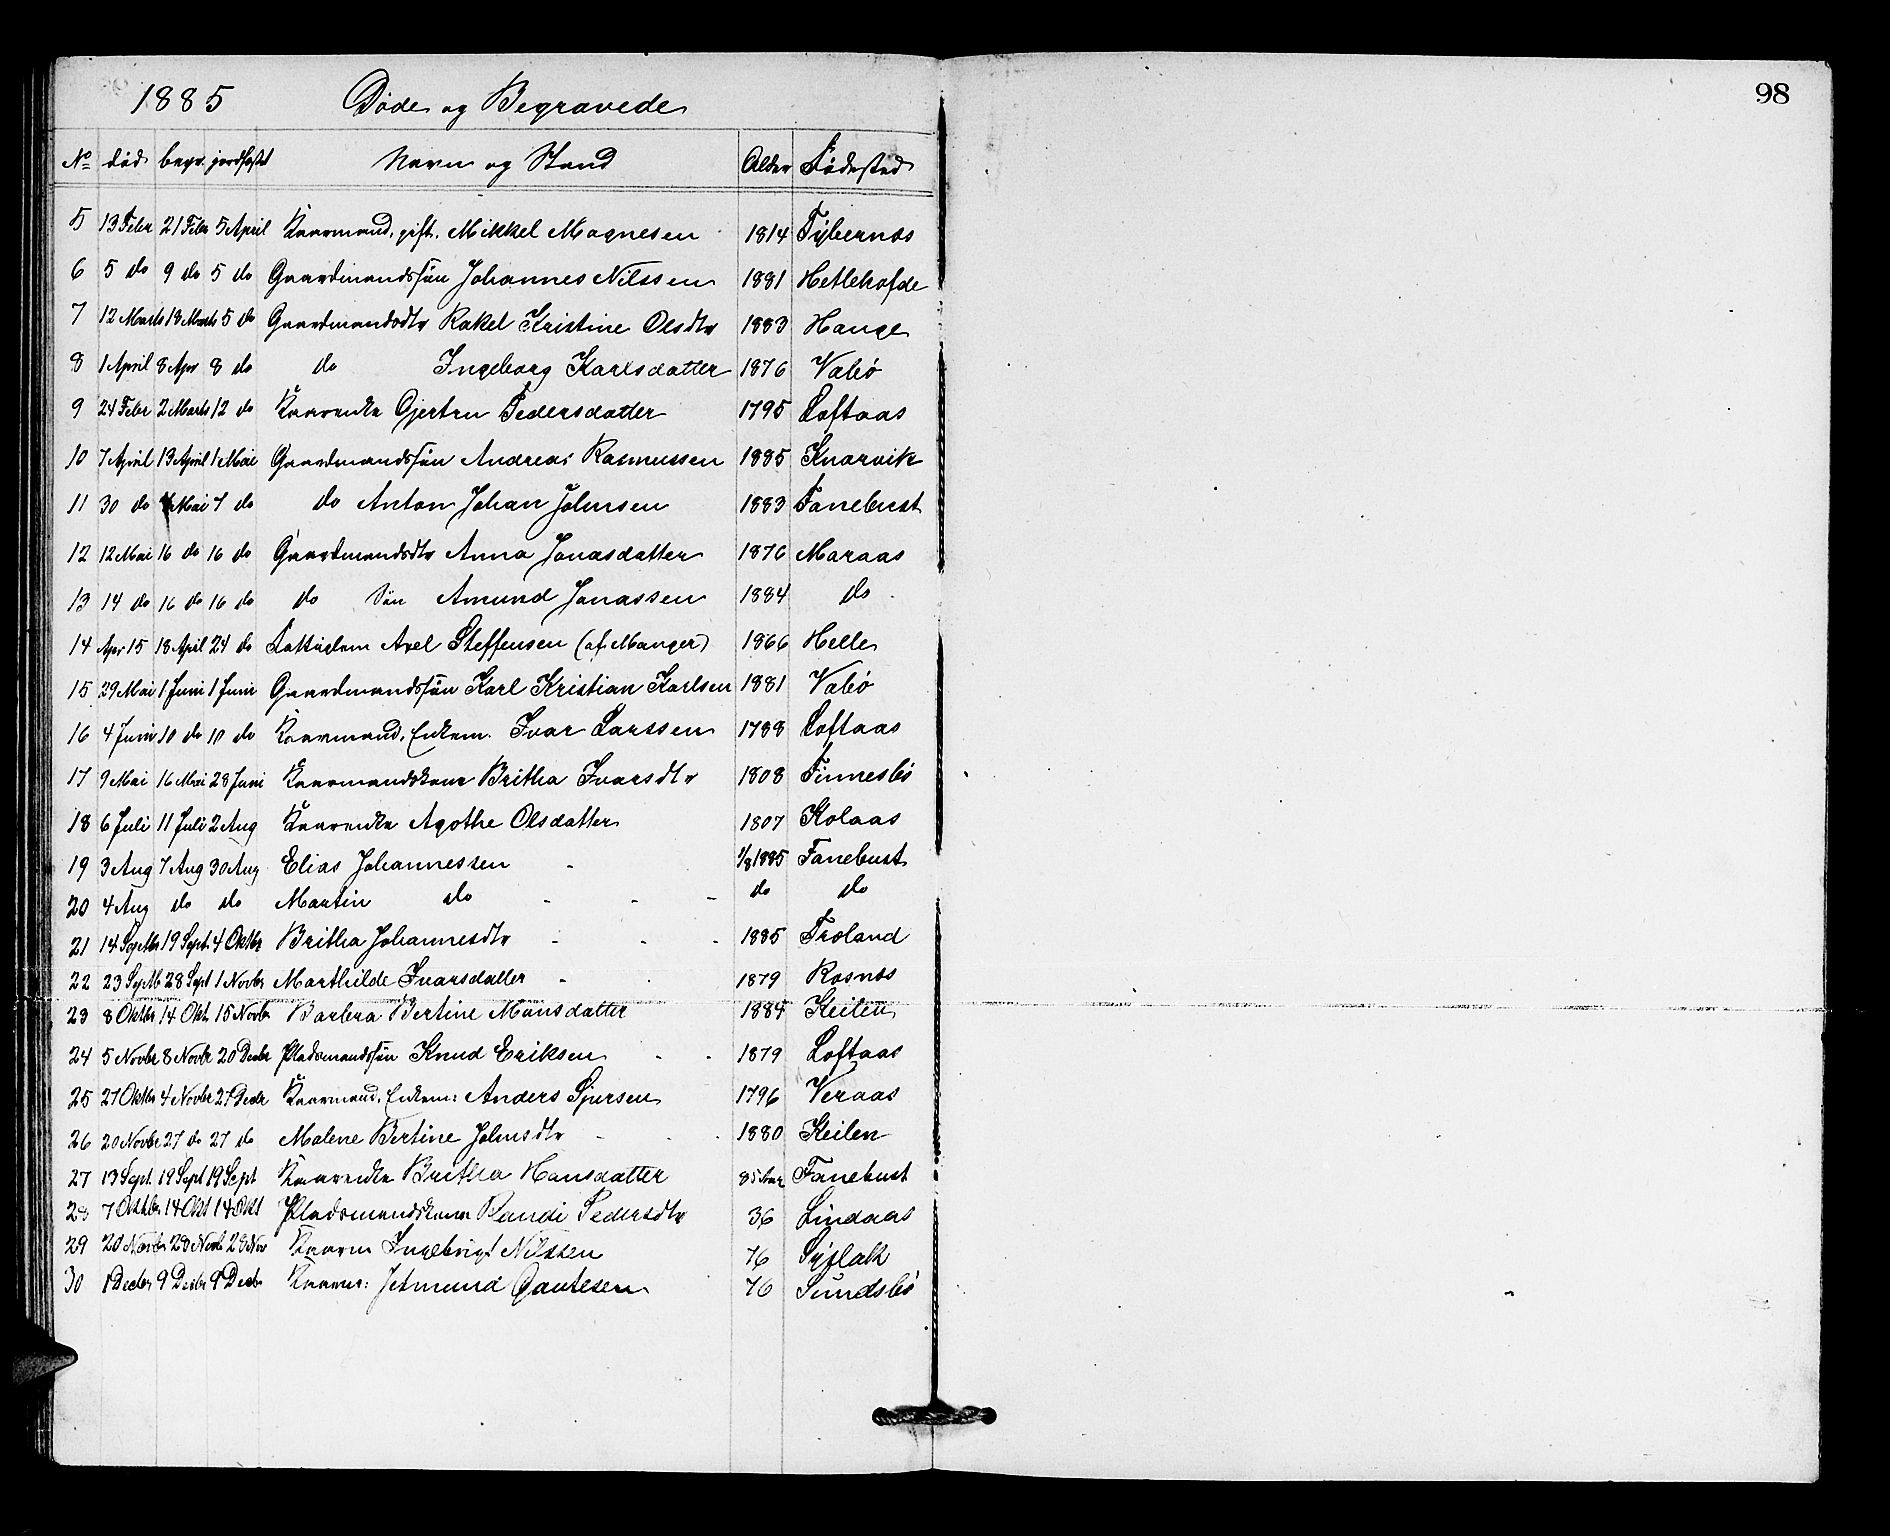 98
1885 Døde og Begravede
No død begr. jordfæstet Navn og Stand Alder Fødested
5 13 Febr 21 Febr 5 April Kaarmand, gift. Mikkel Magnesen 1814
6 5 do 9 do 5 do Gaardmandssøn Johannes Nilssen 1881
7 12 Marts 18 Marts 5 do Gaardmandsdtr Rakel Kristine Olsdtr 1883 Hauge
8 1 April 8 Apr 8 do do Ingeborg Karlsdatter 1876 Vabø
9 24 Febr 2 Marts 12 do Kaarenke Gjertru Pedersdatter 1795 Loftaas
10 7 April 13 April 1 Mai Gaardmandssøn Andreas Rasmussen 1885 Knarvik
11 30 do Mai 7 do do Anton Johan Johnsen 1883 Fanebust
12 12 Mai 16 do 16 do Gaardmandsdtr Anna Jonasdatter 1876 Maraas
13 14 do 16 do 16 do do Søn Amund Jonassen 1884 do
14 Apr 15 18 April 24 do Fattiglem Axel Steffensen (af Manger) 1866 Helle
15 29 Mai 1 Juni 1 Juni Gaardmandssøn Karl Kristian Karlsen 1881 Vabø
16 4 Juni 10 do 10 do Kaarmand, Enkem. Ivar Larssen 1788 Loftaas
17 9 Mai 16 Mai 28 Juni Kaarmandskone Britha Ivarsdtr 1808 Finnesbø
18 6 Juli 11 Juli 2 Aug Kaarenke Agothe Olsdatter 1807 Kolaas
19 3 Aug 7 Aug 30 Aug Elias Johannessen - 1/8 1885 Fanebust
20 4 Aug do do Martin do - - - do do
21 14 Septbr 19 Sept. 4 Oktbr Britha Johannesdtr - - - 1885 Troland
22 23 Septb 28 Sept 1 Novbr Marthilde Ivarsdatter - 1879 Rosnes
23 8 Oktbr 14 Okt. 15 Novbr Barbra Bertine Monsdatter 1884
24 5 Novbr 8 Novbr 20 Decbr Pladsmandssøn Knud Eriksen - - 1879 Loftaas
25 27 Oktbr 4 Novbr 27 Decbr Kaarmand, Enkem: Anders Sjursen 1796 Veraas
26 20 Novbr 27 do 27 do Malene Bertine Johnsdtr - - - 1880 Keilen
27 13 Sept. 19 Sept 19 Sept Kaarenke Britha Hansdatter 85 Aar Fanebust
28 7 Oktbr 14 Okt 14 Okt Pladsmandskone Randi Pedersdtr 36 Lindaas
29 20 Novbr 28 Novb 28 Nov Kaarm Ingebrigt Nilssen 76
30 1 Decbr 9 Decbr 9 Decbr Kaarm: Jetmund Gautesen 76 Sundsbø